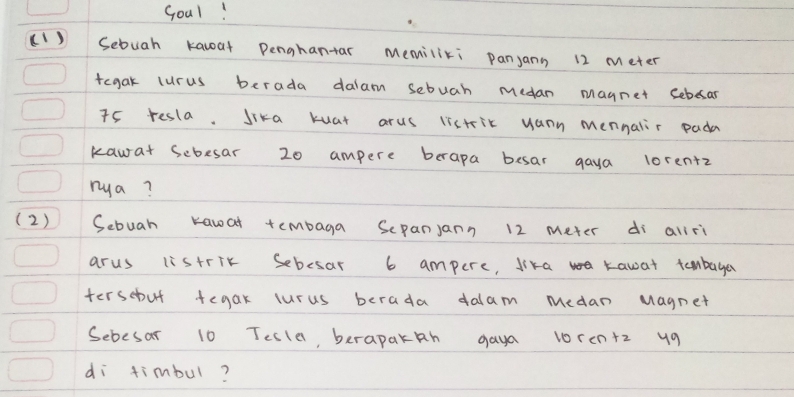 Soal !
(1) Sebuah kawat Penghantar Memiliki panjang 12 meter
tegak lurus berada dalam sebuah medan magnet sebesar
75 tesla. Jika kuat arus listrik yang mengalir pada
kawat sebesar 20 ampere berapa besar gaya lorentz
nya ?
(2) Sebuah kawat tembaga Sepanjang 12 meter di aliri
arus listrik sebesar 6 ampere, Jika kawat tembaga
tersebut tegak lurus berada dalam medan magnet
Sebesar 10 Tesla, berapakah gaya lorentz yg
di timbul ?